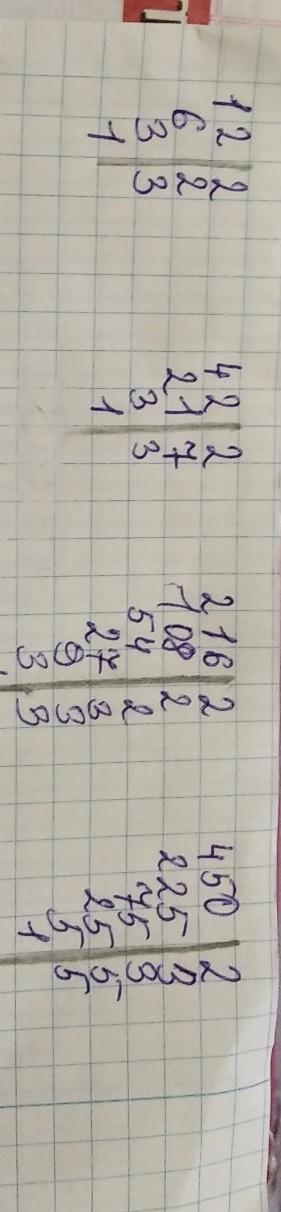 12 2 42 2 216 2 450 2
6 2 21 7 108 2 225 3
3 3 3 3 54 2 75 3
1 1 27 3 25 5
9 3 5 5
3 3 1